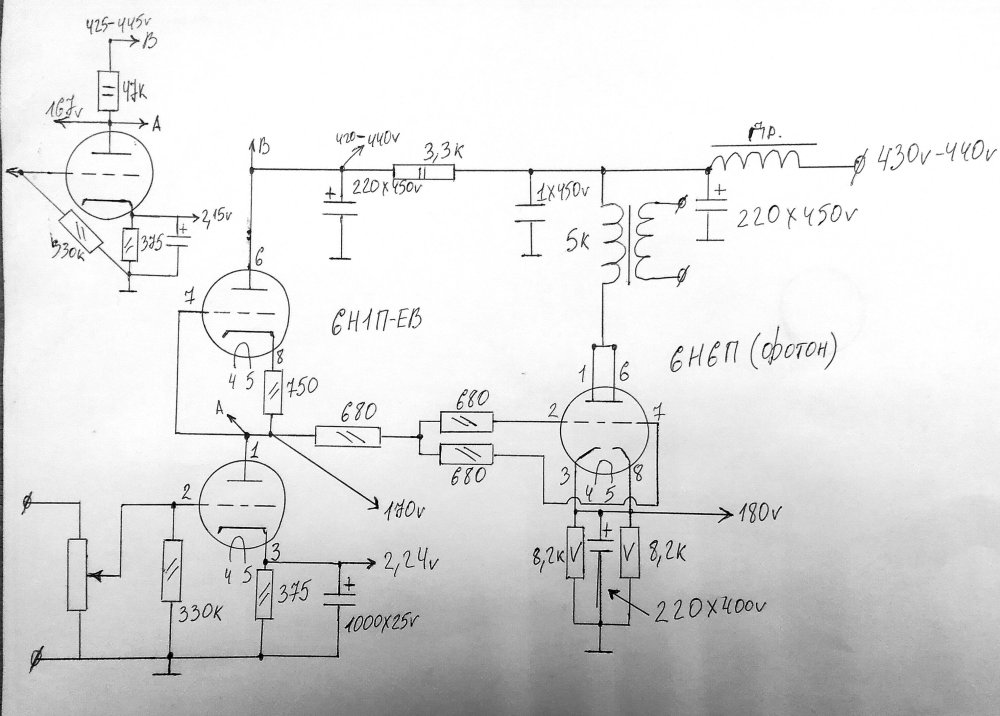 425-445v
B
47K
167v
A
2,15v
330K
375
B
420-440v
3,3K
220x450v
1x450v
Др.
430v-440v
220x450v
5K
6
7
6Н1П-ЕВ
8
4 5
750
A
680
680
680
170v
1
6
6Н6П (фотон)
2
7
3
8
4 5
180v
8,2K
8,2K
220x400v
1
2
4 5
3
2,24v
330K
375
1000x25v